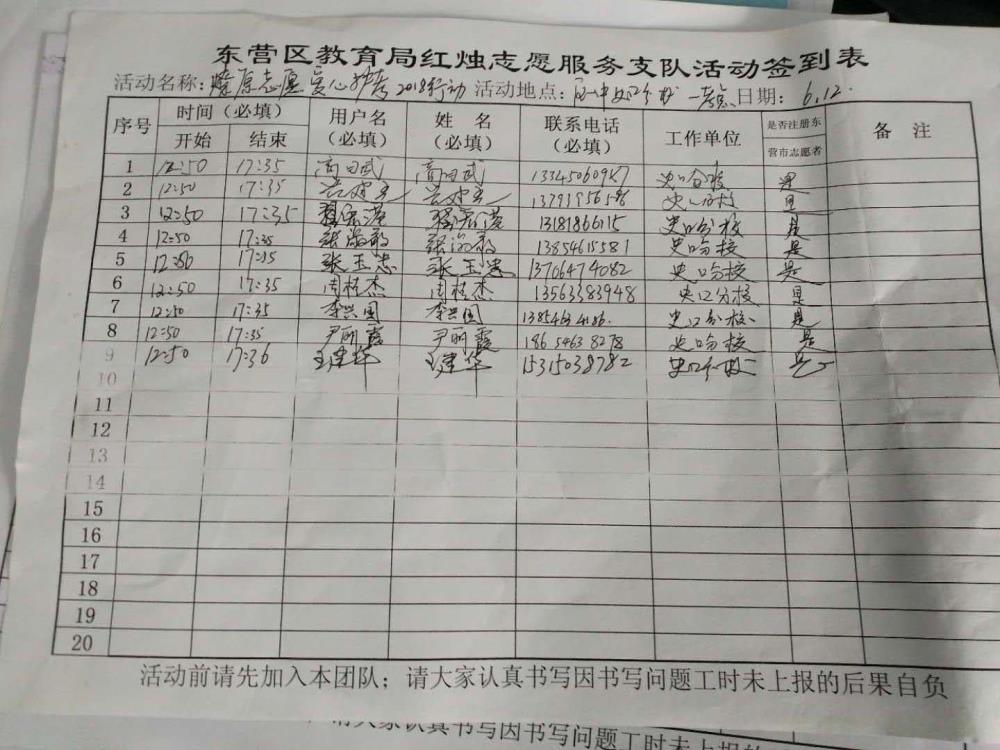 东营区教育局红烛志愿服务支队活动签到表
活动名称：燎原志愿爱心护考2018行动 活动地点： 史口分校一考点 日期：6.12.
序号 时间（必填） 用户名（必填） 姓名（必填） 联系电话（必填） 工作单位 是否注册东营市志愿者 备注
开始 结束
1 12:50 17:35 高田武 高田武 史口分校 是
2 12:50 17:35 史口分校 是
3 12:50 17:35 13181866115 史口分校 是
4 12:50 17:35 张海敏 张海敏 13854615581 史口分校 是
5 12:50 17:35 张玉忠 张玉忠 13706474082 史口分校 是
6 12:50 17:35 周桂杰 周桂杰 13563383948 史口分校 是
7 12:50 17:35 李兴国 李兴国 13854634186. 史口分校 是
8 12:50 17:35 尹丽霞 尹丽霞 18654638278 史口分校 是
9 12:50 17:36 王建华 王建华 15315038782 史口分校 是
10
11
12
13
14
15
16
17
18
19
20
活动前请先加入本团队；请大家认真书写因书写问题工时未上报的后果自负
请大家认真书写因书写问题工时未上报的